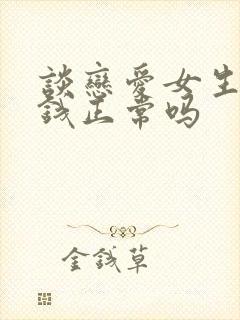 談戀愛女生
錢正常吗
金錢草